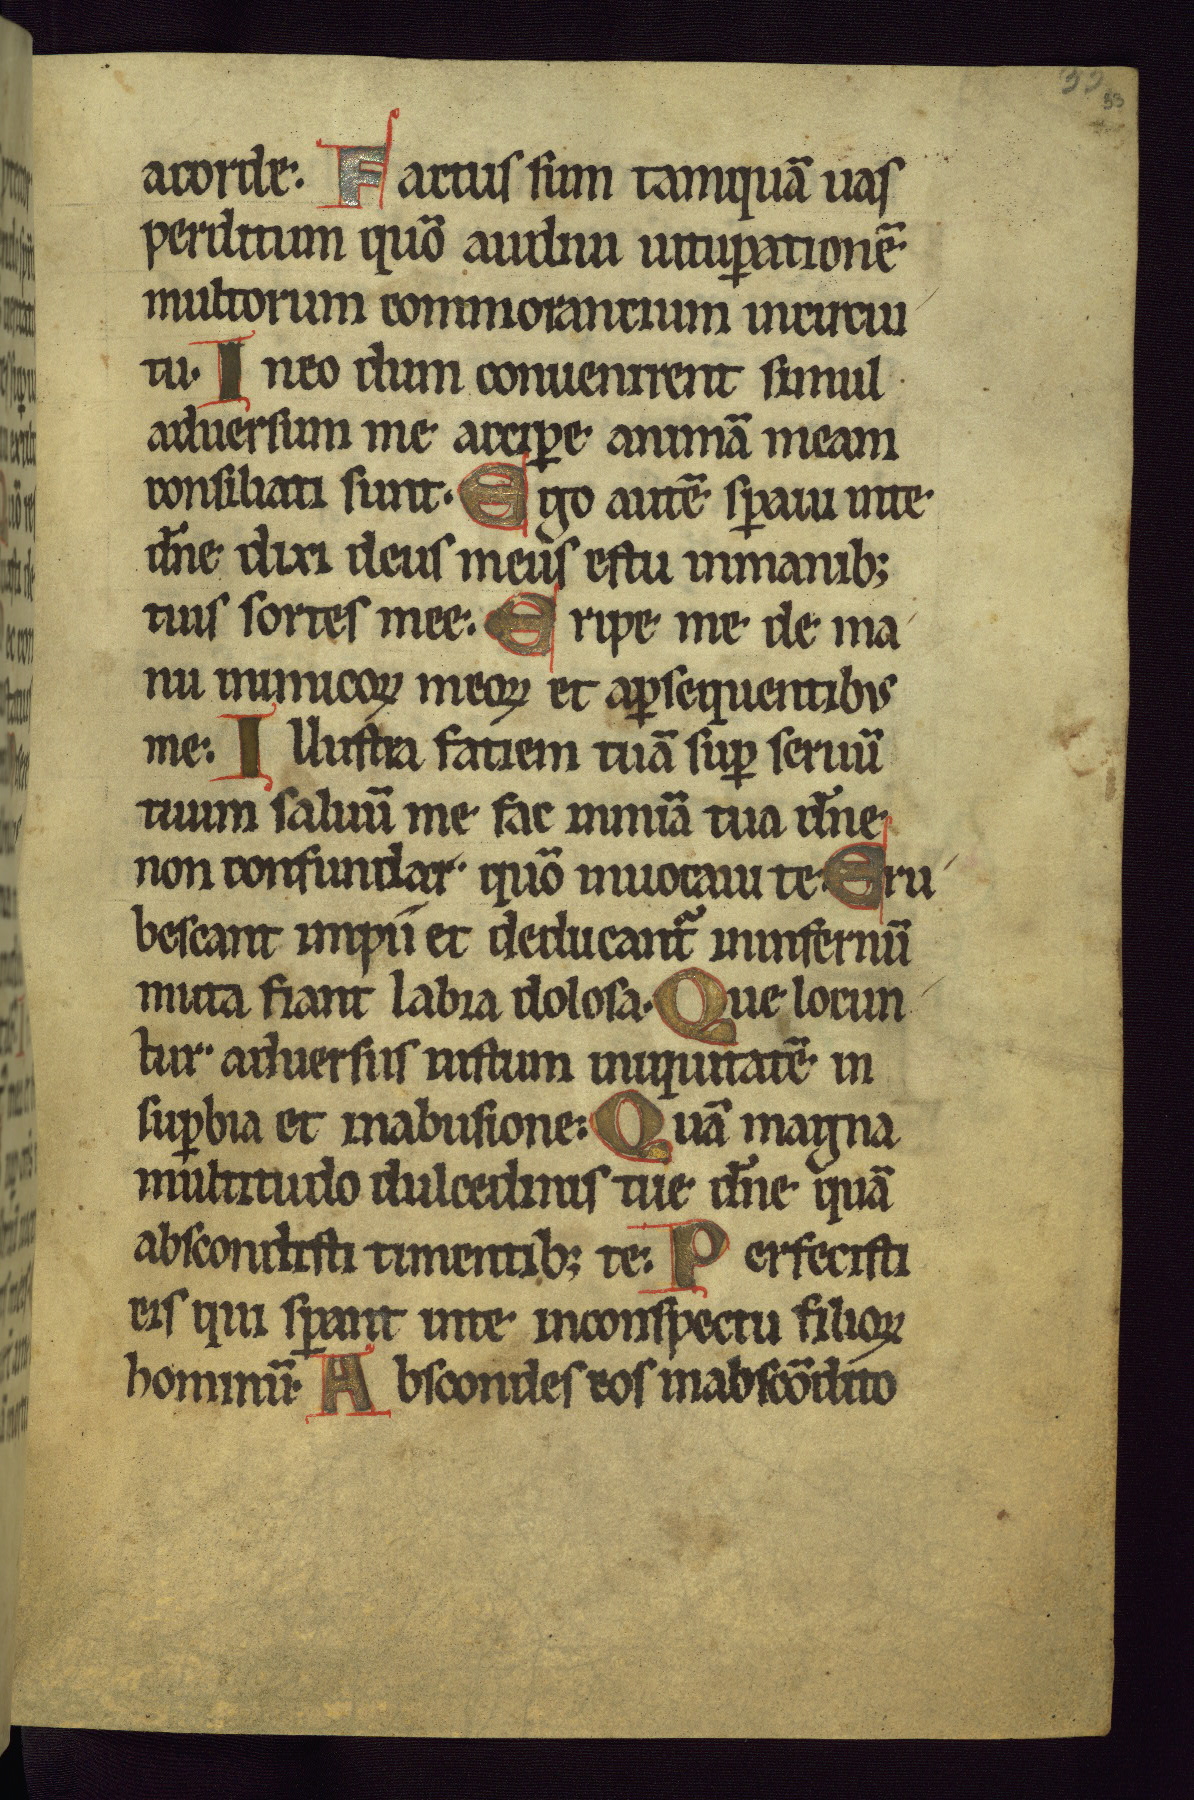 33
33
acorde. Factus sum tamquā uas
perditum quō audiui uituꝑationē
multorum commorancium incircui
tu. Ineo dum conuenirent simul
aduersum me acciꝑe animā meam
consiliati sunt. Ego autē sꝑaui inte
dn̄e dixi deus meus estu inmanib;
tuis sortes mee. Eripe me de ma
nu inimicoꝝ meoꝝ et aꝑsequentibus
me. Illustra fatiem tuā suꝑ seruū
tuum saluū me fac inmiā tua dn̄e
non confundar quō inuocaui te Eru
bescant impii et deducant᷑ ininfernū
muta fiant labia dolosa. Que locun
tur aduersus iustum iniquitatē in
suꝑbia et inabusione. Quā magna
multitudo dulcedinis tue dn̄e quā
abscondisti timentib; te. Perfecisti
eis qui sꝑant inte inconspectu filioꝝ
hominū. Abscondes eos inabscōdito